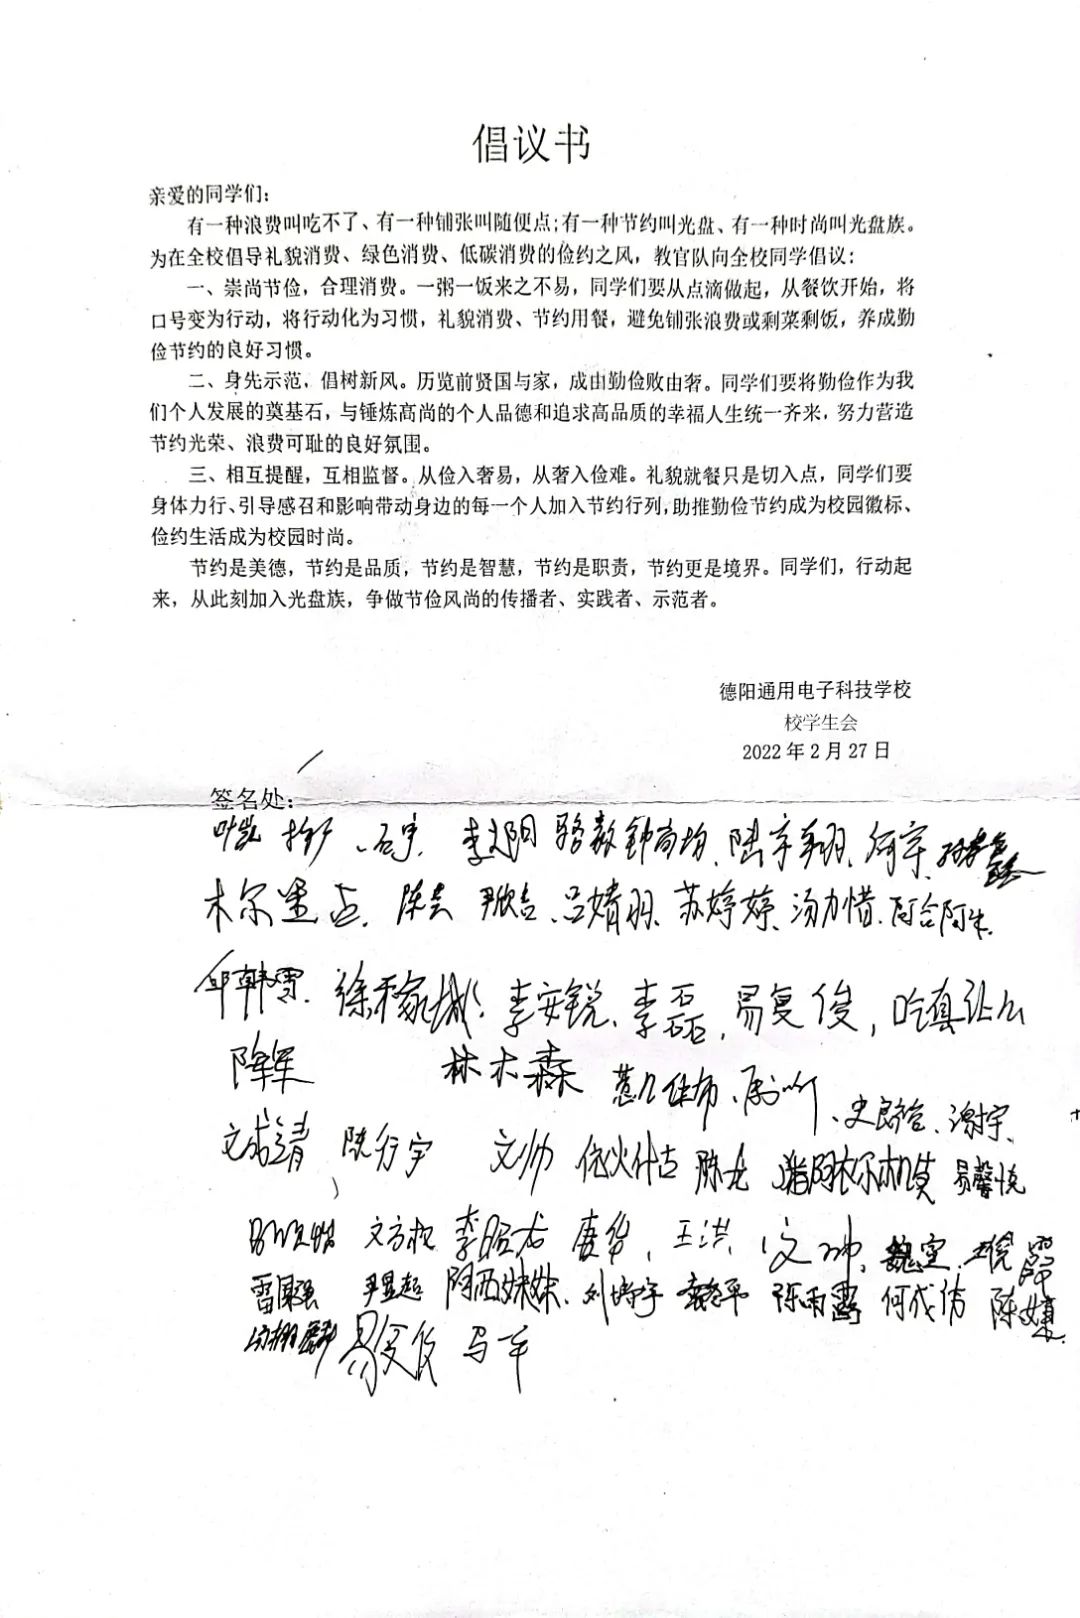 倡议书
亲爱的同学们：
有一种浪费叫吃不了、有一种铺张叫随便点；有一种节约叫光盘、有一种时尚叫光盘族。
为在全校倡导礼貌消费、绿色消费、低碳消费的俭约之风，教官队向全校同学倡议：
一、崇尚节俭，合理消费。一粥一饭来之不易，同学们要从点滴做起，从餐饮开始，将
口号变为行动，将行动化为习惯，礼貌消费、节约用餐，避免铺张浪费或剩菜剩饭，养成勤
俭节约的良好习惯。
二、身先示范，倡树新风。历览前贤国与家，成由勤俭败由奢。同学们要将勤俭作为我
们个人发展的奠基石，与锤炼高尚的个人品德和追求高品质的幸福人生统一齐来，努力营造
节约光荣、浪费可耻的良好氛围。
三、相互提醒，互相监督。从俭入奢易，从奢入俭难。礼貌就餐只是切入点，同学们要
身体力行、引导感召和影响带动身边的每一个人加入节约行列，助推勤俭节约成为校园徽标、
俭约生活成为校园时尚。
节约是美德，节约是品质，节约是智慧，节约是职责，节约更是境界。同学们，行动起
来，从此刻加入光盘族，争做节俭风尚的传播者、实践者、示范者。
德阳通用电子科技学校
校学生会
2022年2月27日
签名处：
叶凯 石宇 李文阳 陆宇翔 何军
吕婧羽 苏婷婷 汤力惜 阿合阿牛
邱韩雪 李安锐 李磊 易复俊
陈军 林木森 谢宇
文成靖 陈行宇 文帅 陈龙 易馨悦
文方权 唐华 王洪 文帅
雷国强 尹显超 阿西妹妹 陈雨露 陈婕
马军